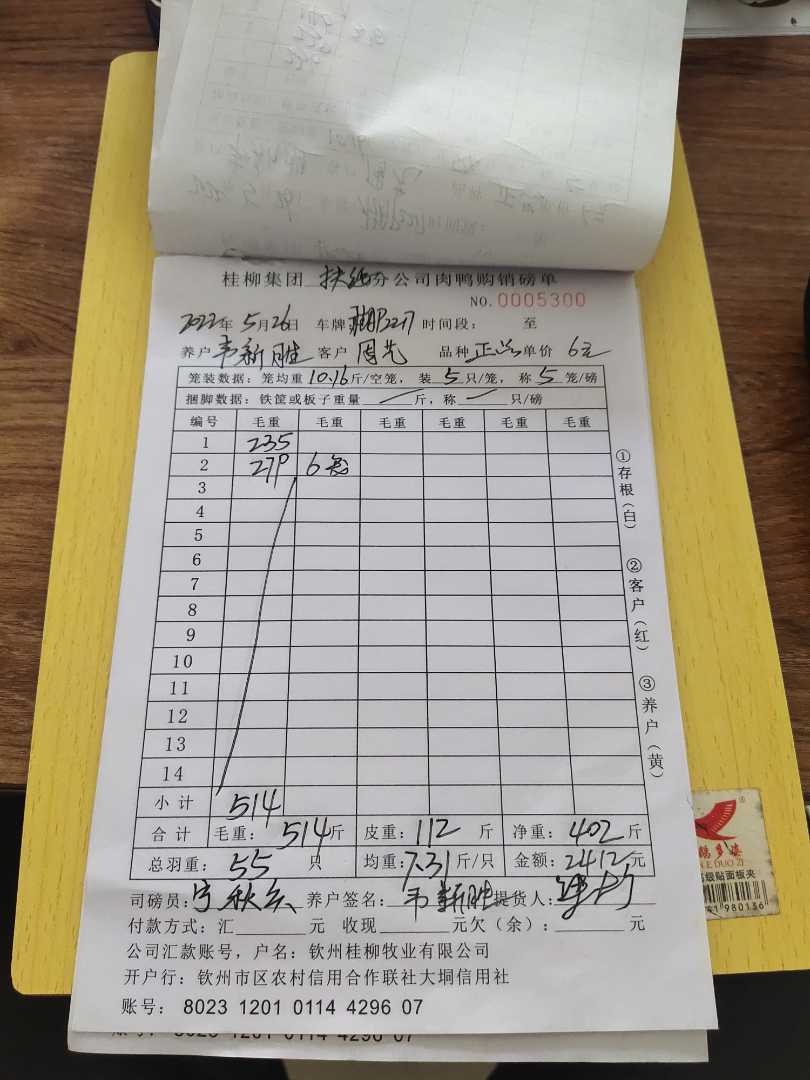 桂柳集团 扶绥分公司肉鸭购销磅单
NO.0005300
2022年5月26日 车牌 2217 时间段： 至
养户 韦新胜 客户 周先 品种 正 单价 6元
笼装数据：笼均重10.16斤/空笼，装5只/笼，称5笼/磅
捆脚数据：铁筐或板子重量 / 斤，称 / 只/磅
编号 毛重 毛重 毛重 毛重 毛重 毛重
1 235
2 279 6
3
4
5
6
7
8
9
10
11
12
13
14
小计 514
合计 毛重：514斤 皮重：112斤 净重：402斤
总羽重：55只 均重：7.31斤/只 金额：2412元
司磅员：宁秋 养户签名：韦新胜 提货人：
付款方式：汇 元 收现 元欠（余）： 元
公司汇款账号，户名：钦州桂柳牧业有限公司
开户行：钦州市区农村信用合作联社大垌信用社
账号：8023 1201 0114 4296 07
①存根（白）
②客户（红）
③养户（黄）
E DUO ZI
级贴面板夹
980136
账号：8023 1201 0114 4296 07